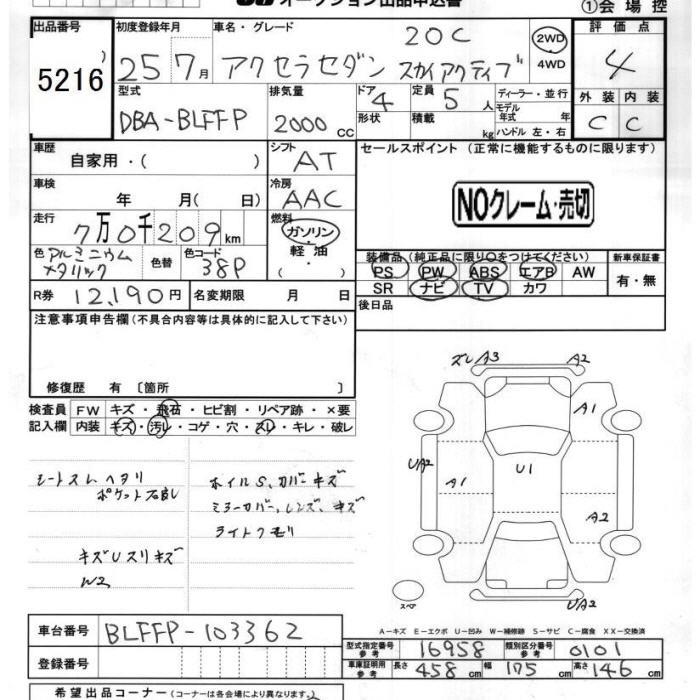 オークション出品申込書
①会場控
出品番号 初度登録年月 車名・グレード 評価点
5216 25 7月 アクセラセダン 20C スカイアクティブ 2WD 4WD 4
型式 排気量 ドア 定員 ディーラー・並行 外装 内装
DBA-BLFFP 2000cc 4 5人 モデル年式 年 C C
形状 積載 kg ハンドル 左・右
車歴 シフト セールスポイント (正常に機能するものに限ります)
自家用・( ) AT
車検 冷房
年 月( 日) AAC NOクレーム・売切
走行 燃料
7万0千209km ガソリン・軽油・( )
色 色替 色コード 装備品(純正品に限り○をつけてください) 新車保証書
アルミニウムメタリック 38P PS PW ABS エアB AW 有・無
SR ナビ TV カワ
R券 12,190円 名変期限 月 日 後日品
注意事項申告欄(不具合内容等は具体的に記入して下さい)
修復歴 有 〔箇所 〕
検査員 FW キズ・飛石・ヒビ割・リペア跡・×要
記入欄 内装 キズ・汚レ・コゲ・穴・スレ・キレ・破レ
ズレ A3 A2
A1
UA2 A1 U1
A2
スペア UA2
シートスレヘタリ
ポケット不良
キズUスリキズ
W2
ホイルS、カバーキズ
ミラーカバー、レンズ、キズ
ライトクモリ
A-キズ E-エクボ U-凹み W-補修跡 S-サビ C-腐食 XX-交換済
車台番号 BLFFP-103362
型式指定番号 参考 16958 類別区分番号 参考 0101
登録番号
車庫証明用 参考 長さ 458cm 幅 175cm 高さ 146cm
希望出品コーナー(コーナーは各会場により異なります。)